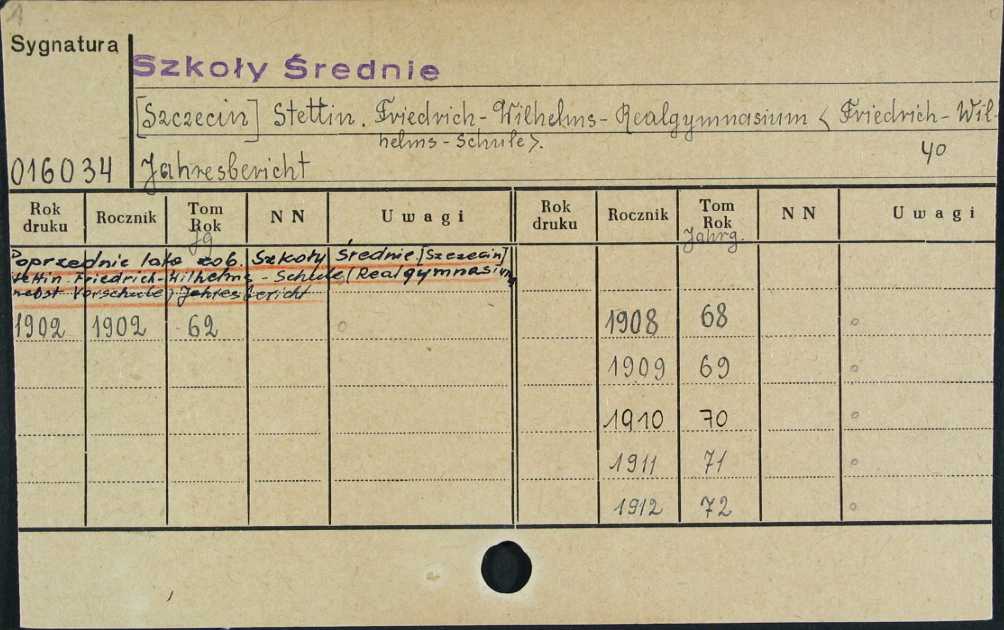 1
Sygnatura
Szkoły Średnie
[Szczecin] Stettin. Friedrich-Wilhelms-Realgymnasium < Friedrich-Wil-
helms-Schule>.
40
016034 Jahresbericht
Rok druku Rocznik Tom Rok NN Uwagi Rok druku Rocznik Tom Rok NN Uwagi
Jg Jahrg.
Poprzednie lata zob. Szkoły Średnie [Szczecin]
Stettin-Friedrich-Wilhelms-Schule (Realgymnasium
nebst Vorschule) Jahresbericht
1902 1902 62 1908 68
1909 69
1910 70
1911 71
1912 72